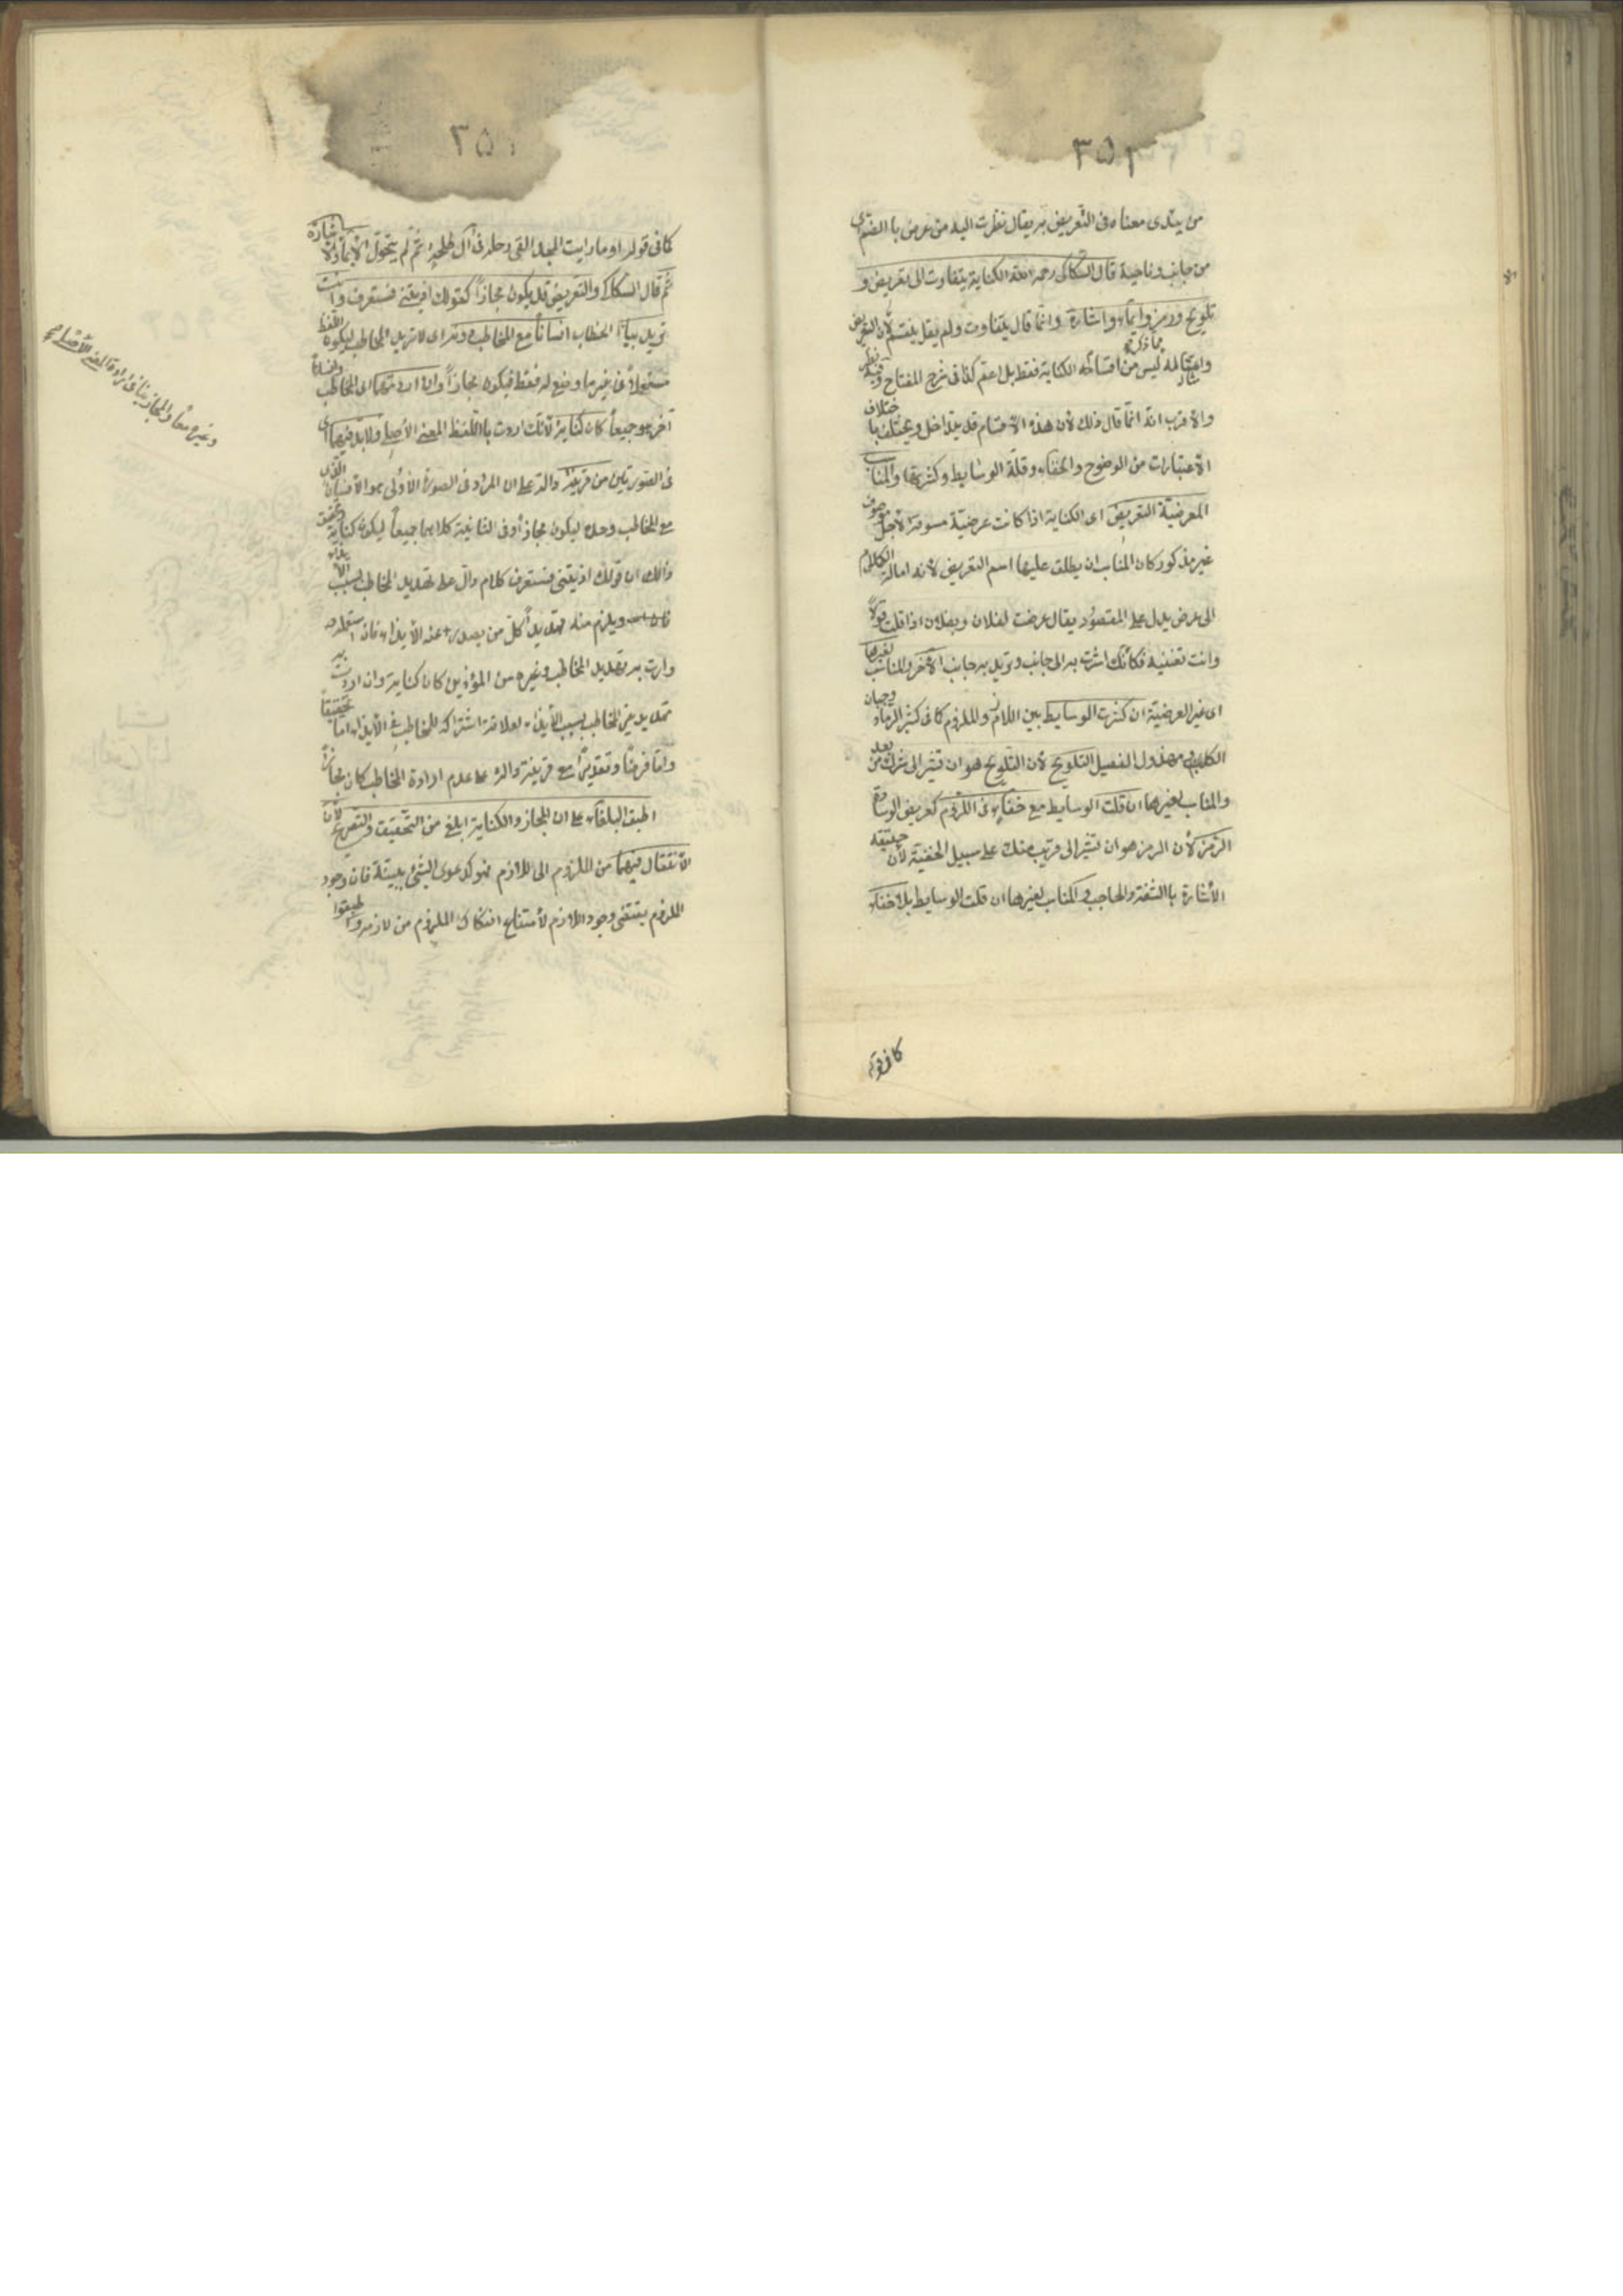 ٣٥٢
من يتدى معناه فى التعريض به يقال نظرت اليه من عرض بالضم اى
من جانب وناحية قال السكاكى رحمه الله الكناية يتفاوت الى تعريض و
تلويح ورمز وايماء واشارة وانما قال يتفاوت ولم يقل ينقسم لأن التعريض
وامثاله مما ذكر ليس من اقسام الكناية فقط بل اعم كذا فى شرح المفتاح وفيه نظر
والاقرب انه انما قال ذلك لأن هذه الأقسام قد يتداخل ويختلف باختلاف
الأعتبارات من الوضوح والخفاء وقلّة الوسايط وكثرتها والمناسب
العرضيّة التعريض اى الكناية اذا كانت عرضيّة مسوقة لأجل موصوف
غير مذكور كان المناسب ان يطلق عليها اسم التعريض لأنه امالة الكلام
الى عرض يدل على المقصود يقال عرضت لفلان وبفلان اذا قلت قولاً
وانت تعنيه فكأنك اشرت به الى جانب وتريد به جانب الآخر والمناسب لغيرها
اى غير العرضيّة ان كثرت الوسايط بين اللازم والملزوم كما فى كثير الرماد وجبان
الكلب ومهزول الفصيل التلويح لأن التلويح هو ان تشير الى غيرك من بعد
والمناسب لغيرها ان قلت الوسايط مع خفاء فى اللزوم كعريض الوسادة
الرمز لأن الرمز هو ان تشير الى قريب منك على سبيل الخفية لأن حقيقته
الأشارة بالشفة والحاجب والمناسب لغيرها ان قلت الوسايط بلا خفاء
كما فى قوله
٣٥١
كما فى قوله او ما رايت المجد القى رحله فى آل طلحة ثم لم يتحول الأيماء والاشارة
ثم قال السكاكى والتعريض قد يكون مجازاً كقولك اذيتنى فستعرف وانت
تريد بتاء الخطاب انساناً مع المخاطب دونه اى لا تريد المخاطب ليكون اللفظ
مستعملاً فى غير ما وضع له فقط فيكون مجازاً وان اردتهما اى المخاطب وانساناً
آخر معه جميعاً كان كناية لأنك اردت باللفظ المعنى الأصلى وغيره معاً والمجاز ينافى ارادة المعنى الأصلى ولابد فيهما اى
فى الصورتين من قرينة دالة على ان المراد فى الصورة الأولى هو الأنسان الذى
مع المخاطب وحده ليكون مجازاً وفى الثانية كلاهما جميعاً ليكون كناية وتحقيق
ذلك ان قولك اذيتنى فستعرف كلام دال على تهديد المخاطب بسبب الأيذاء
ويلزم منه تهديد كل من يصدر عنه الأيذاء فان استعملته
واردت به تهديد المخاطب وغيره من المؤذين كان كناية وان اردت به
تهديد غير المخاطب بسبب الأيذاء لعلاقة اشتراكه للمخاطب فى الأيذاء اما تحقيقاً
واما فرضاً وتقديراً مع قرينة دالة على عدم ارادة المخاطب كان مجازاً
اطبق البلغاء على ان المجاز والكناية ابلغ من التحقيق والتصريح لأن
الأنتقال فيهما من الملزوم الى اللازم فهو كدعوى الشئ ببينة فان وجود
الملزوم يقتضى وجود اللازم لأمتناع انفكاك الملزوم من لازمه واطبقوا